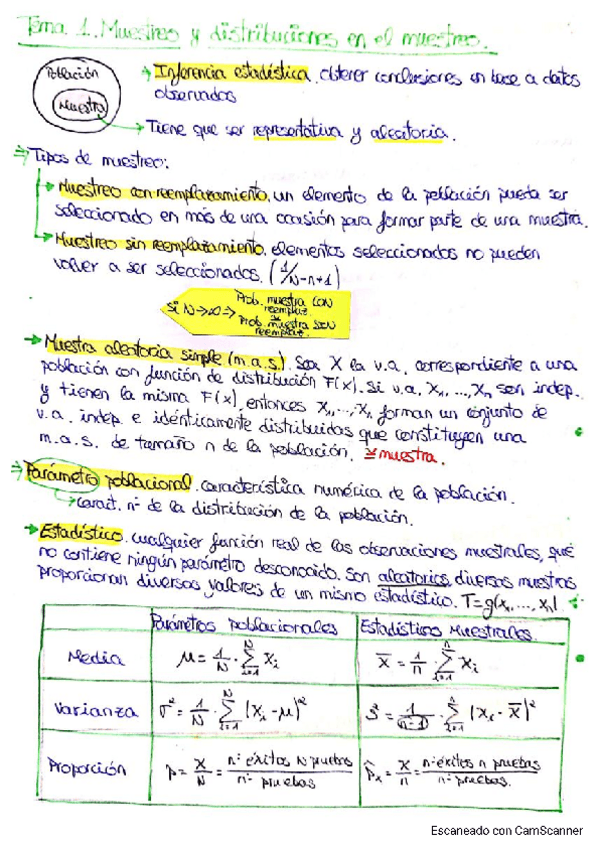 Tema 1. Muestreo y distribuciones en el muestreo.
Población
Muestra
→ Inferencia estadística. obtener conclusiones en base a datos
observados
→ Tiene que ser representativa y aleatoria.
⇒ Tipos de muestreo:
→ Muestreo con reemplazamiento. un elemento de la población pueda ser
seleccionado en más de una ocasión para formar parte de una muestra.
→ Muestreo sin reemplazamiento. elementos seleccionados no pueden
volver a ser seleccionados. (1/N-n+1)
Si N→∞ ⇒ Prob. muestra CON reemplaz. ≅ Prob. muestra SIN reemplaz.
→ Muestra aleatoria simple (m.a.s.). Sea X la v.a. correspondiente a una
población con función de distribución F(x). Si v.a. X₁, ..., Xn son indep.
y tienen la misma F(x), entonces X₁, ..., Xn forman un conjunto de
v.a. indep. e idénticamente distribuidas que constituyen una
m.a.s. de tamaño n de la población. ≅ muestra.
⇒ Parámetro poblacional. característica numérica de la población.
→ caract. nº de la distribución de la población.
→ Estadístico. cualquier función real de las observaciones muestrales, que
no contiene ningún parámetro desconocido. Son aleatorios, diversas muestras
proporcionan diversos valores de un mismo estadístico. T=g(x₁, ..., xn)
Parámetros poblacionales Estadísticos Muestrales
Media μ = 1/N · Σ(i=1, N) Xi x̄ = 1/n · Σ(i=1, n) Xi
Varianza σ² = 1/N · Σ(i=1, N) (Xi - μ)² S² = 1/(n-1) · Σ(i=1, n) (Xi - X̄)²
Proporción p = X/N = nº éxitos N pruebas / nº pruebas p̂x = X/n = nº éxitos n pruebas / nº pruebas.
Escaneado con CamScanner